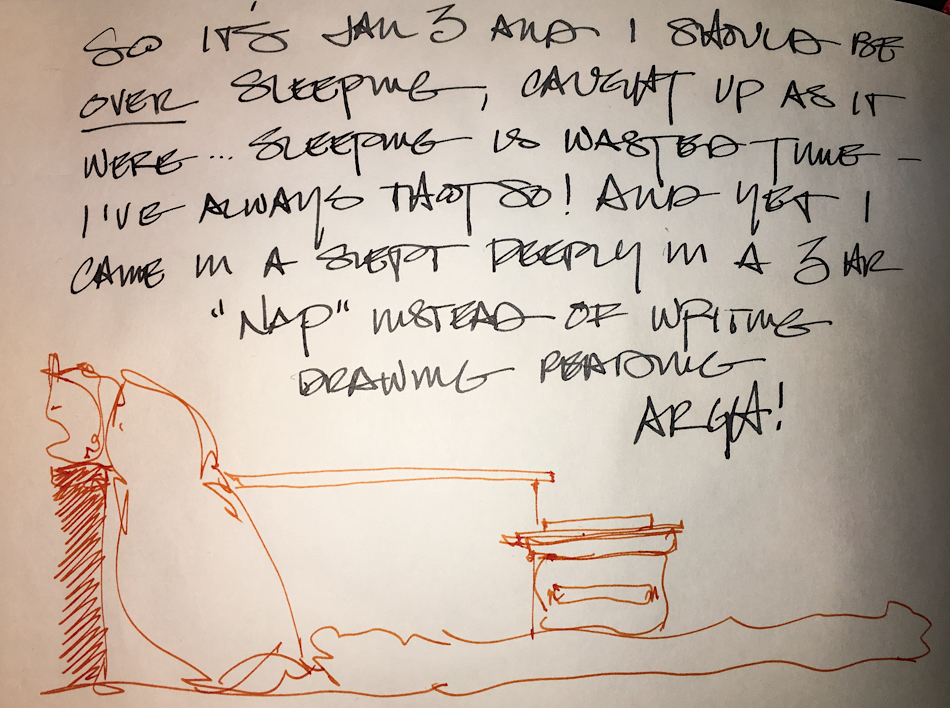 SO IT'S JAN 3 AND I SHOULD BE
OVER SLEEPING, CAUGHT UP AS IT
WERE... SLEEPING IS WASTED TIME -
I'VE ALWAYS THAOT SO! AND YET I
CAME IN A SLEPT DEEPLY IN A 3 HR
"NAP" INSTEAD OF WRITING
DRAWING READING
ARGH!